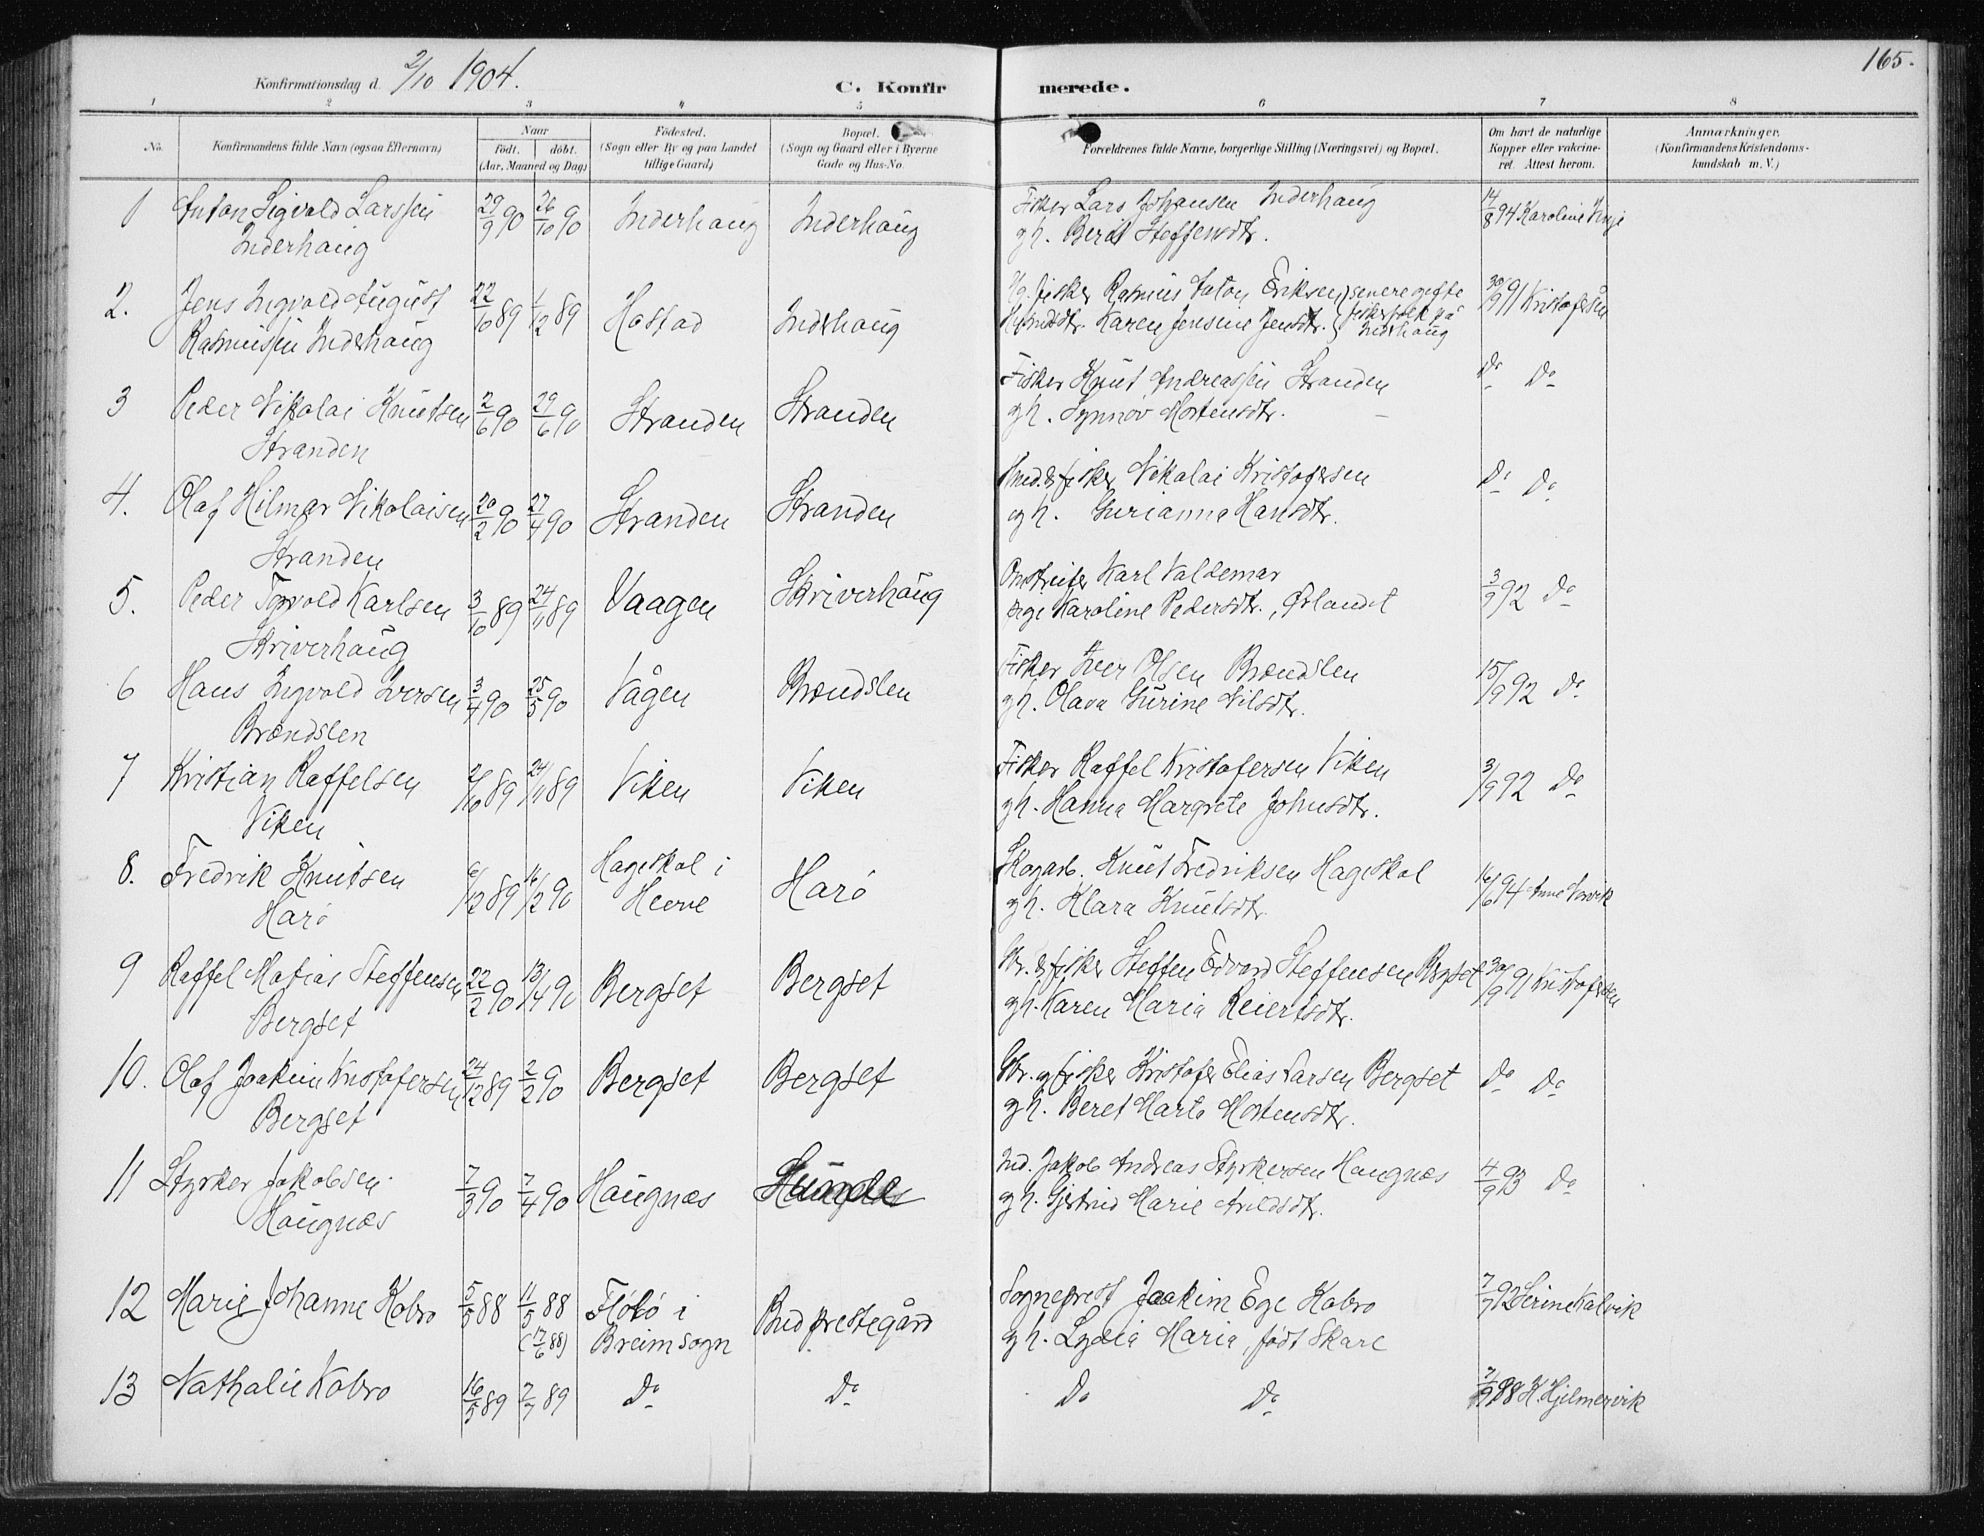 165.
Konfirmationsdag d. 2/10 1904.
C. Konfirmerede.
1 2 3 4 5 6 7 8
No. Konfirmandens fulde Navn (ogsaa Efternavn) Naar født. døbt. (Aar, Maaned og Dag) Fødested. (Sogn eller By og paa Landet tillige Gaard) Bopæl. (Sogn og Gaard eller i Byerne Gade og Hus-No. Forældrenes fulde Navne, borgerlige Stilling (Næringsvei) og Bopæl. Om havt de naturlige Kopper eller vakcineret. Attest herom. Anmærkninger. (Konfirmandens Kristendomskundskab m. V.)
1 Anton Sigvald Larssen 29/9 90 26/10 90 Inderhaug Inderhaug Fisker Lars Johansen Inderhaug 14/8 94 Karoline
Inderhaug gh. Berit Steffensdtr.
2. Jens Ingvald August 22/10 89 1/12 89 Hostad Inderhaug Fisker Rasmus Anton Eriksen senere gifte 30/9 91 Kristofersen
Rasmussen Inderhaug Karen Jensine Jensdtr. fiskerfolk på Inderhaug
3 Peder Nikolai Knutsen 2/6 90 29/6 90 Stranden Stranden Fisker Knut Andreassen Stranden Do Do
Stranden gh. Synnøv Mortensdtr.
4. Olaf Hilmar Nikolaisen 20/2 90 27/4 90 Stranden Stranden fisker Nikolai Kristofersen Do Do
Stranden gh. Gurianna Hansdtr.
5. Peder Torvold Karlsen 3/10 89 24/11 89 Vaagen Skriverhaug Omstreifer Karl Valdemar 3/9 92 Do
Skriverhaug Karoline Pedersdtr., Ørlandet
6 Hans Ingvald Iversen 3/4 90 25/5 90 Vågen Brændslen Fisker Iver Olsen Brændslen 15/9 92 Do
Brændslen gh. Olava Gurine Nilsdtr.
7 Kristian Raffelsen 2/10 89 24/11 89 Viken Viken Fisker Raffel Kristofersen Viken 3/9 92 Do
Viken gh. Hanna Margrete Johnsdtr.
8. Fredrik Knutsen 6/12 89 16/2 90 Hageskal i Harö Skogarb. Knut Fredriksen Hageskal 16/6 94 Anne
Harö Heeve gh. Klara Knutsdtr.
9 Raffel Matias Steffensen 22/2 90 13/4 90 Bergset Bergset Gbr. & fisker Steffen Edvard Steffensen Bergset 30/9 91 Kristofersen
Bergset gh. Karen Maria Reiersdtr.
10. Olaf Joakim Kristofersen 24/12 89 2/2 90 Bergset Bergset Gbr. og fisker Kristofer Elias Larsen Bergset Do Do
Bergset gh. Beret Marta Mortensdtr.
11 Styrker Jakobsen 7/3 90 7/4 90 Haugnæs Ind. Jakob Andreas Styrkersen Haugnæs 4/9 93 Do
Haugnæs gh. Gjertrud Marie Arildsdtr.
12 Marie Johanne Kobro 5/5 88 11/5 88 Flölö i Bud prestegård Sogneprest Joakim Ege Kobro 7/7 92 Serine Kalvik
(17/6 88) Breim sogn gh. Lydia Maria, født Skare
13 Nathalie Kobro 16/5 89 7/7 89 Do Do Do Do 7/9 98 H. Hjelmervik